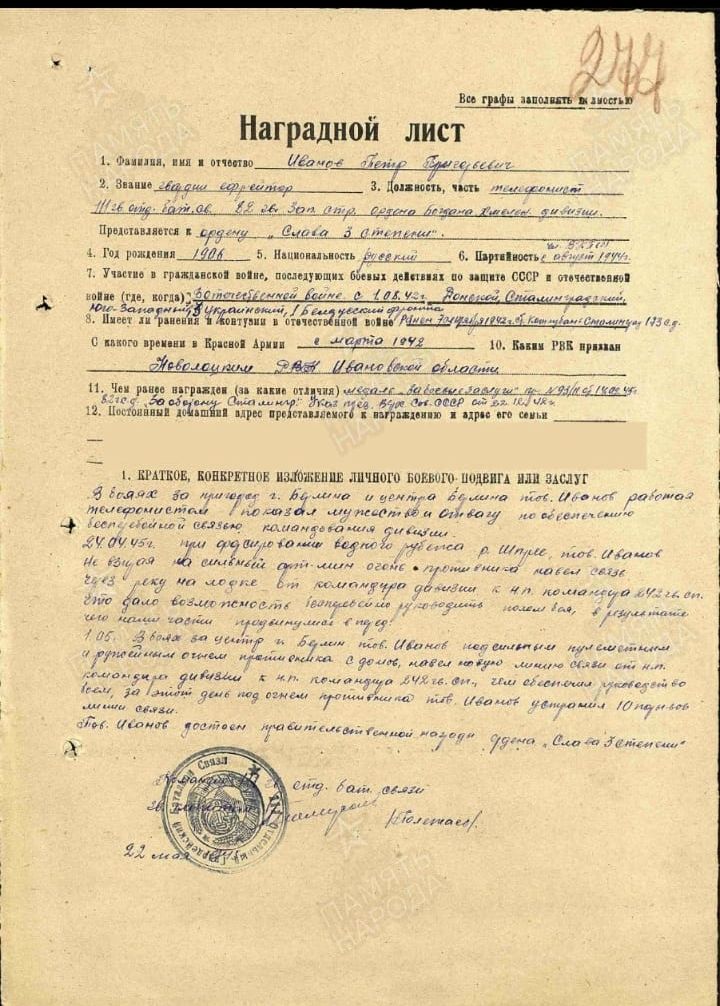 277
Все графы заполнять полностью
Наградной лист
1. Фамилия, имя и отчество Иванов Петр Григорьевич
2. Звание гвардии ефрейтор 3. Должность, часть телефонист
111 гв. отд. бат. св. 82 гв. Зап. стр. ордена Богдана Хмельн. дивизии.
Представляется к ордену „Слава 3 степени".
4. Год рождения 1906 5. Национальность русский 6. Партийность чл. ВКП(б)
с август 1944г.
7. Участие в гражданской войне, последующих боевых действиях по защите СССР и отечественной
войне (где, когда) В отечественной войне с 1.08.42г. Донской, Сталинградский,
Юго-Западный, 3 Украинский, 1 Белорусский фронта
8. Имеет ли ранения и контузии в отечественной войне Ранен 1942г. Сталинград 173 с.д.
С какого времени в Красной Армии с марта 1942 10. Каким РВК призван
РВК Ивановской области
11. Чем ранее награжден (за какие отличия) медаль „За боевые заслуги" пр. №93/н от
82 гв. сд. „За оборону Сталингр." Указ през. Верх. Сов. СССР от 22.12.42г.
12. Постоянный домашний адрес представляемого к награждению и адрес его семьи
1. КРАТКОЕ, КОНКРЕТНОЕ ИЗЛОЖЕНИЕ ЛИЧНОГО БОЕВОГО ПОДВИГА ИЛИ ЗАСЛУГ
В боях за пригород г. Берлина и центра Берлина тов. Иванов работая
телефонистом показал мужество и отвагу по обеспечению
бесперебойной связью командования дивизии.
24.04.45г. при форсировании водного рубежа р. Шпрее, тов. Иванов
не взирая на сильный арт-мин огонь противника навел связь
через реку на лодке от командира дивизии к н.п. командира 242 гв. сп.
Что дало возможность бесперебойно руководить полем боя, в результате
чего наши части продвинулись вперед.
1.05. В боях за центр г. Берлин тов. Иванов под сильным пулеметным
и ружейным огнем противника с домов, навел новую линию связи от н.п.
командира дивизии к н.п. командира 242 гв. сп., чем обеспечил руководство
боем, за этот день под огнем противника тов. Иванов устранил 10 порывов
линии связи.
Тов. Иванов достоен правительственной награды ордена „Слава 3 степени"
Командир отд. бат. связи
22 мая
111 Отдельный Гвардейский Батальон Связи
ПАМЯТЬ НАРОДА